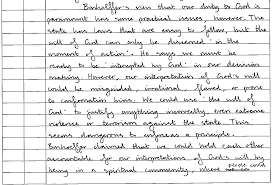 Bonhoeffer's view that our duty to God is
paramount has some practical issues, however. The
state has laws that are easy to follow, but the
will of God can only be 'discerned' in the
moment of action'. He says we must be
ready to be 'interrupted by God' in our decision
making. However, our interpretation of God's will
could be misguided, irrational, flawed, or prone
to confirmation bias. We could use 'the will of
God' to justify anything incorrectly, even extreme
violence or terrorism against the state. This
seems dangerous to enforce as a principle.
Bonhoeffer claimed that we could hold each other
accountable for our interpretations of God's will by
being in a spiritual community, where people could